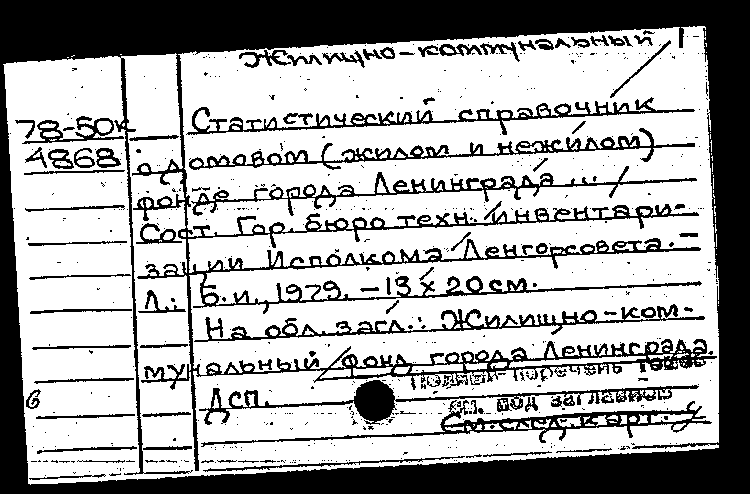 Жилищно-коммунальный
78-50к Статистический справочник
4868 о домовом (жилом и нежилом)
фонде города Ленинграда ... /
Сост. Гор. бюро техн. инвентари-
зации Исполкома Ленгорсовета. –
Л.: Б.и., 1979. – 13 х 20 см.
На обл. загл.: Жилищно-ком-
мунальный фонд города Ленинграда.
Полный перечень томов
Дсп.
см. под заглавием
См. след. карт.
6